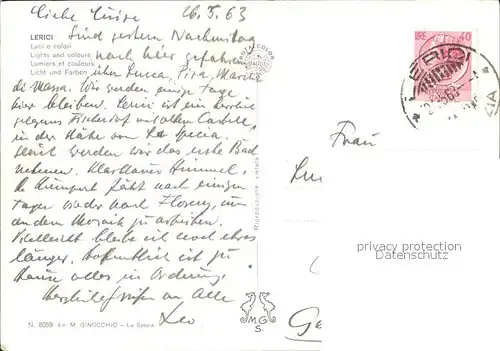 Liebe Luise 26.5.63
LERICI
Luci e colori
Lights and colours
Lumiers et couleurs
Licht und Farben
Sind gestern Nachmittag
nach hier gefahren
über Lucca, Pisa, Marina
di Massa. Wir werden einige Tage
hier bleiben. Lerici ist ein herrlich
gelegenes Fischerdorf mit altem Castell,
in der Nähe von La Spezia.
Heute werden wir das erste Bad
nehmen. Klarblauer Himmel.
fährt nach einigen
Tagen wieder nach Florenz, um
an dem Mosaik zu arbeiten.
Vielleicht bleibe ich noch etwas
länger. Hoffentlich ist zu
Hause alles in Ordnung.
Herzliche Grüßen an Alle
Leo
N. 8059 Ediz. M. GINOCCHIO - La Spezia
Riproduzione vietata
M G
S.
LIRE 40
LERICI
Frau
PRIVACY PROTECTION
Datenschutz